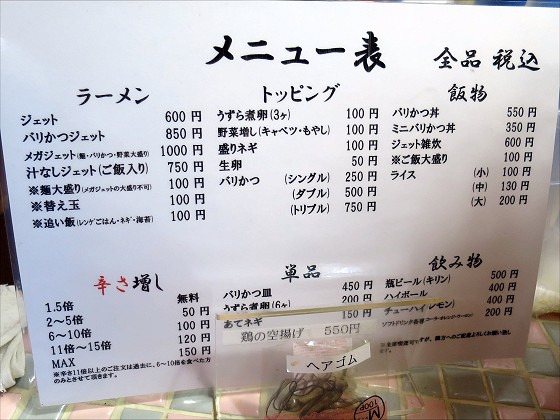 メニュー表
全品 税込
ラーメン
ジェット 600円
バリかつジェット 850円
メガジェット(麺・バリかつ・野菜大盛り) 1000円
汁なしジェット(ご飯入り) 750円
※麺大盛り(メガジェットの大盛り不可) 100円
※替え玉 100円
※追い飯(レンゲごはん・ネギ・海苔) 100円
トッピング
うずら煮卵(3ヶ) 100円
野菜増し(キャベツ・もやし) 100円
盛りネギ 100円
生卵 50円
バリかつ (シングル) 250円
(ダブル) 500円
(トリプル) 750円
飯物
バリかつ丼 550円
ミニバリかつ丼 350円
ジェット雑炊 600円
※ご飯大盛り 100円
ライス (小) 100円
(中) 130円
(大) 200円
辛さ増し
1.5倍 無料
2〜5倍 50円
6〜10倍 100円
11倍〜15倍 120円
MAX 150円
※辛さ11倍以上のご注文は過去に、6〜10倍を食べた方
のみとさせて頂きます。
単品
バリかつ皿 450円
うずら煮卵(6ヶ) 200円
あてネギ 150円
鶏の空揚げ 550円
ヘアゴム
飲み物
瓶ビール(キリン) 500円
ハイボール 400円
チューハイ(レモン) 400円
ソフトドリンク各種 200円